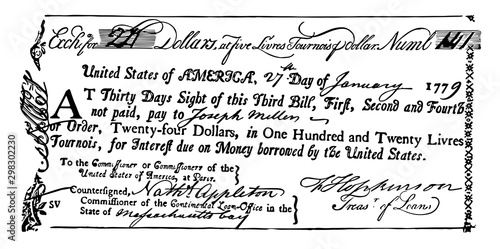 Exchᵃ for 24 Dollars, at five Livres Tournois ꝑ Dollar. Numb 1411
United States of AMERICA, 27th Day of January 1779
AT Thirty Days Sight of this Third Bill, First, Second and Fourth
not paid, pay to Joseph Miller
or Order, Twenty-four Dollars, in One Hundred and Twenty Livres
Tournois, for Interest due on Money borrowed by the United States.
To the Commissioner or Commissioners of the
United States of America, at Paris.
Countersigned, Nathl. Appleton
Commissioner of the Continental Loan-Office in the
State of Massachusetts bay
F Hopkinson
Treasr. of Loans
SV
Adobe Stock | #298302230